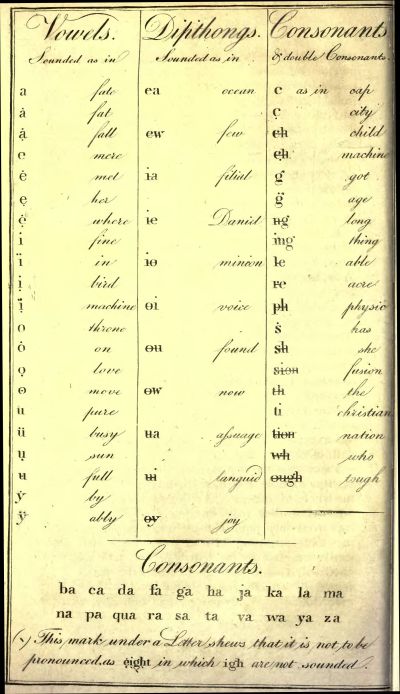 Vowels.
Sounded as in
a fate
ȧ fat
ạ̇ fall
e mere
ė met
ẹ her
ẹ̇ where
i fine
ï in
ị bird
ị̈ machine
o throne
ȯ on
ọ love
ɵ move
u pure
ü busy
ụ sun
u full
ẏ by
ÿ ably
Dipthongs.
Sounded as in
ea ocean
ew few
ia filial
ie Daniel
io minion
oi voice
ou found
ow now
ua aſsuage
ui languid
oy joy
Consonants
& double Consonants.
c as in cap
ç city
ch child
çh machine
g got
g̈ age
ng long
ing thing
le able
re acre
ph physic
ṡ has
sh she
sion fusion
th the
ti christian
tion nation
wh who
ough tough
Consonants.
ba ca da fa ga ha ja ka la ma
na pa qua ra sa ta va wa ya za
(ˎ) This mark under a Letter shews that it is not to be
pronounced, as eight in which igh are not sounded.